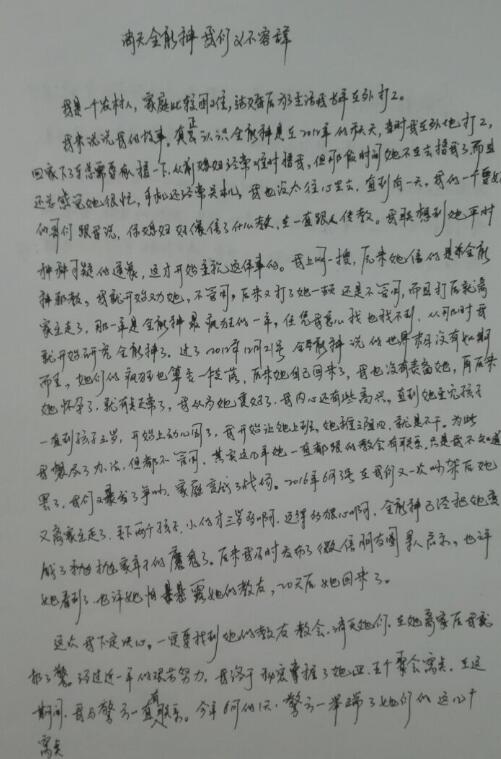 消灭全能神 我们义不容辞
我是一个农村人，家庭比较困难，结婚后为了生活我常年在外打工。
我来说说我的故事，真正认识全能神是在2012年的秋天，当时我在外地打工，
回家下了车总需要有人接一下，从前媳妇经常准时接我，但那段时间她不在去接我了，而且
还总感觉她很忙，手机还经常关机，我也没太往心里去，直到有一天，我的一个要好
的哥们跟我说，你媳妇好像信了什么教，在一直跟人传教。我联想到她平时
种种可疑的迹象，这才开始重视这件事的。我上网一搜，原来她信的是全能
神邪教，我就开始劝她，不管用，后来又打了她一顿还是不管用，而且打后就离
家出走了，那一年是全能神最疯狂的一年，任凭我怎么找也找不到，从那时我
就开始研究全能神了。过了2012年12月21号 全能神说的世界末日没有如期
而至，她们的疯狂也算告一段落，后来她自己回来了，我也没有责备她，再后来
她怀孕了，就有些正常了，我以为她变好了，我内心还有些高兴。直到她生完孩子
一直到孩子三岁，开始上幼儿园了，我开始让她上班，她推三阻四，就是不干。为此
我想尽了办法，但都不管用，其实这几年她一直都跟的教会有联系，只是我不知道
罢了，我们又爆发了争吵，家庭变成了战场。2016年6月3号 在我们又一次吵架后她
又离家出走了，丢下两个孩子，小的才三岁多啊，这得多狠心啊，全能神已经把她变
成了抛家弃子的魔鬼了。后来我不时发布了微信朋友圈 寻人启示，也许
她看到了，也许她怕暴露她的教友，20天后她回来了。
这次我下定决心，一定要找到她的教友 教会，消灭她们，在她离家后我就
报了警。经过近一年的艰苦努力，我终于秘密掌握了她四、五个聚会窝点，在这
期间，我与警方一直联系。今年6月的1天，警方一举端了她们的这几个
窝点